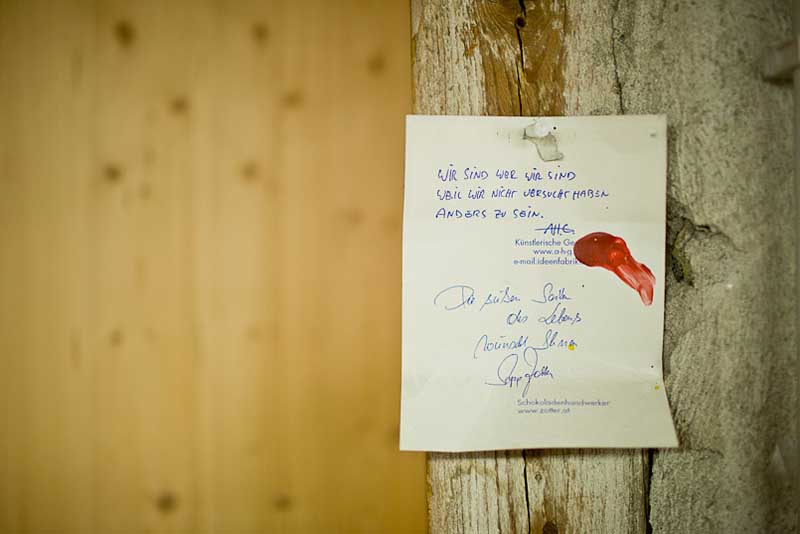 WIR SIND WER WIR SIND
WEIL WIR NICHT VERSUCHT HABEN
ANDERS ZU SEIN.
A.H.G.
Künstlerische Ge
www.a-h-g
e-mail:ideenfabrik
Die süßen Seiten
des Lebens
wünscht Ihnen
Schokoladenhandwerker
www.zotter.at